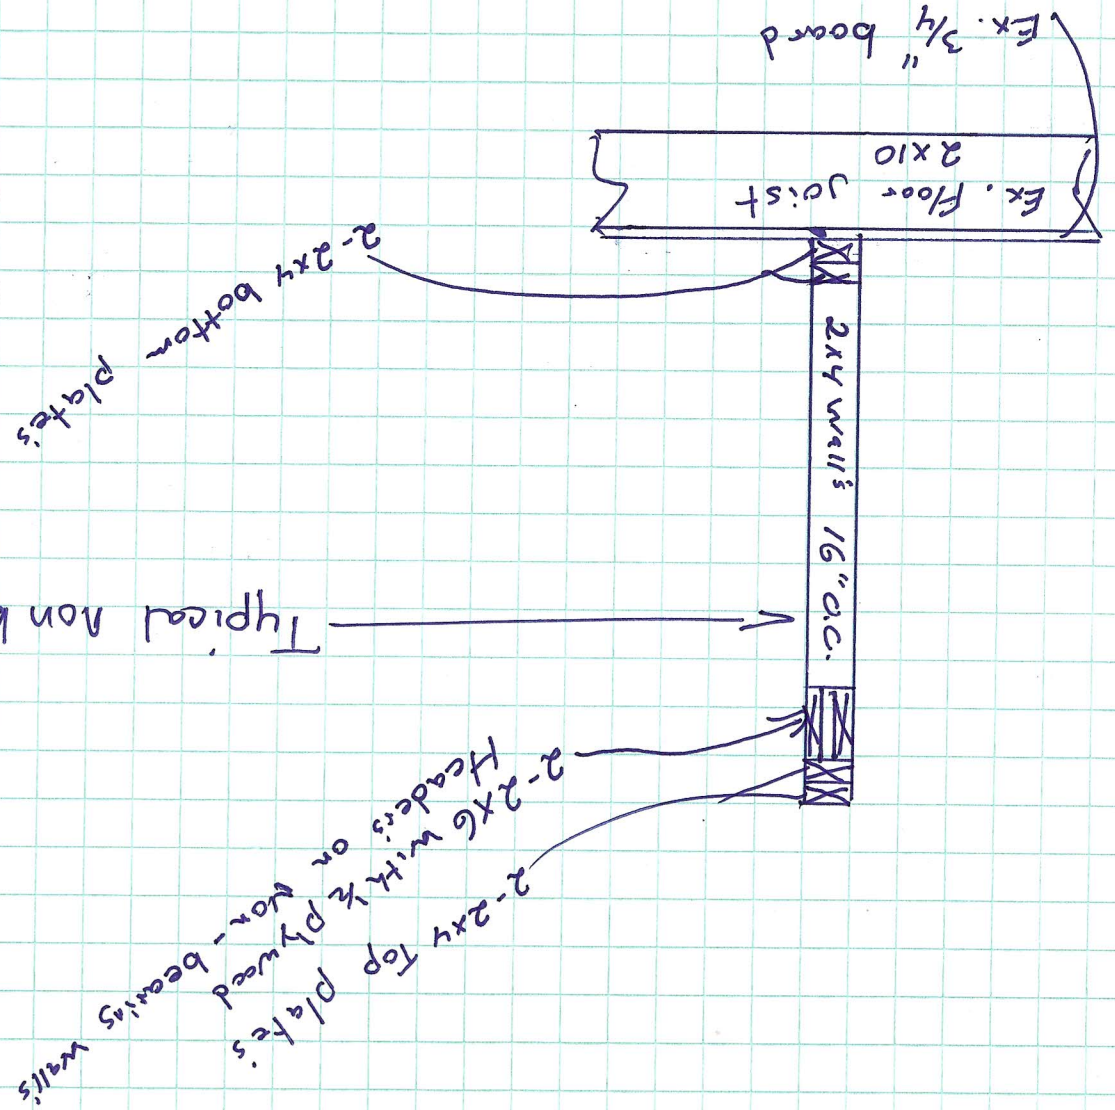 2-2x4 Top plate's
2-2x6 with ½ plywood
Header's on Non-bearing wall's
Typical non
2x4 wall's 16" O.C.
2-2x4 bottom plate's
Ex. Floor joist
2x10
Ex. 3/4" board